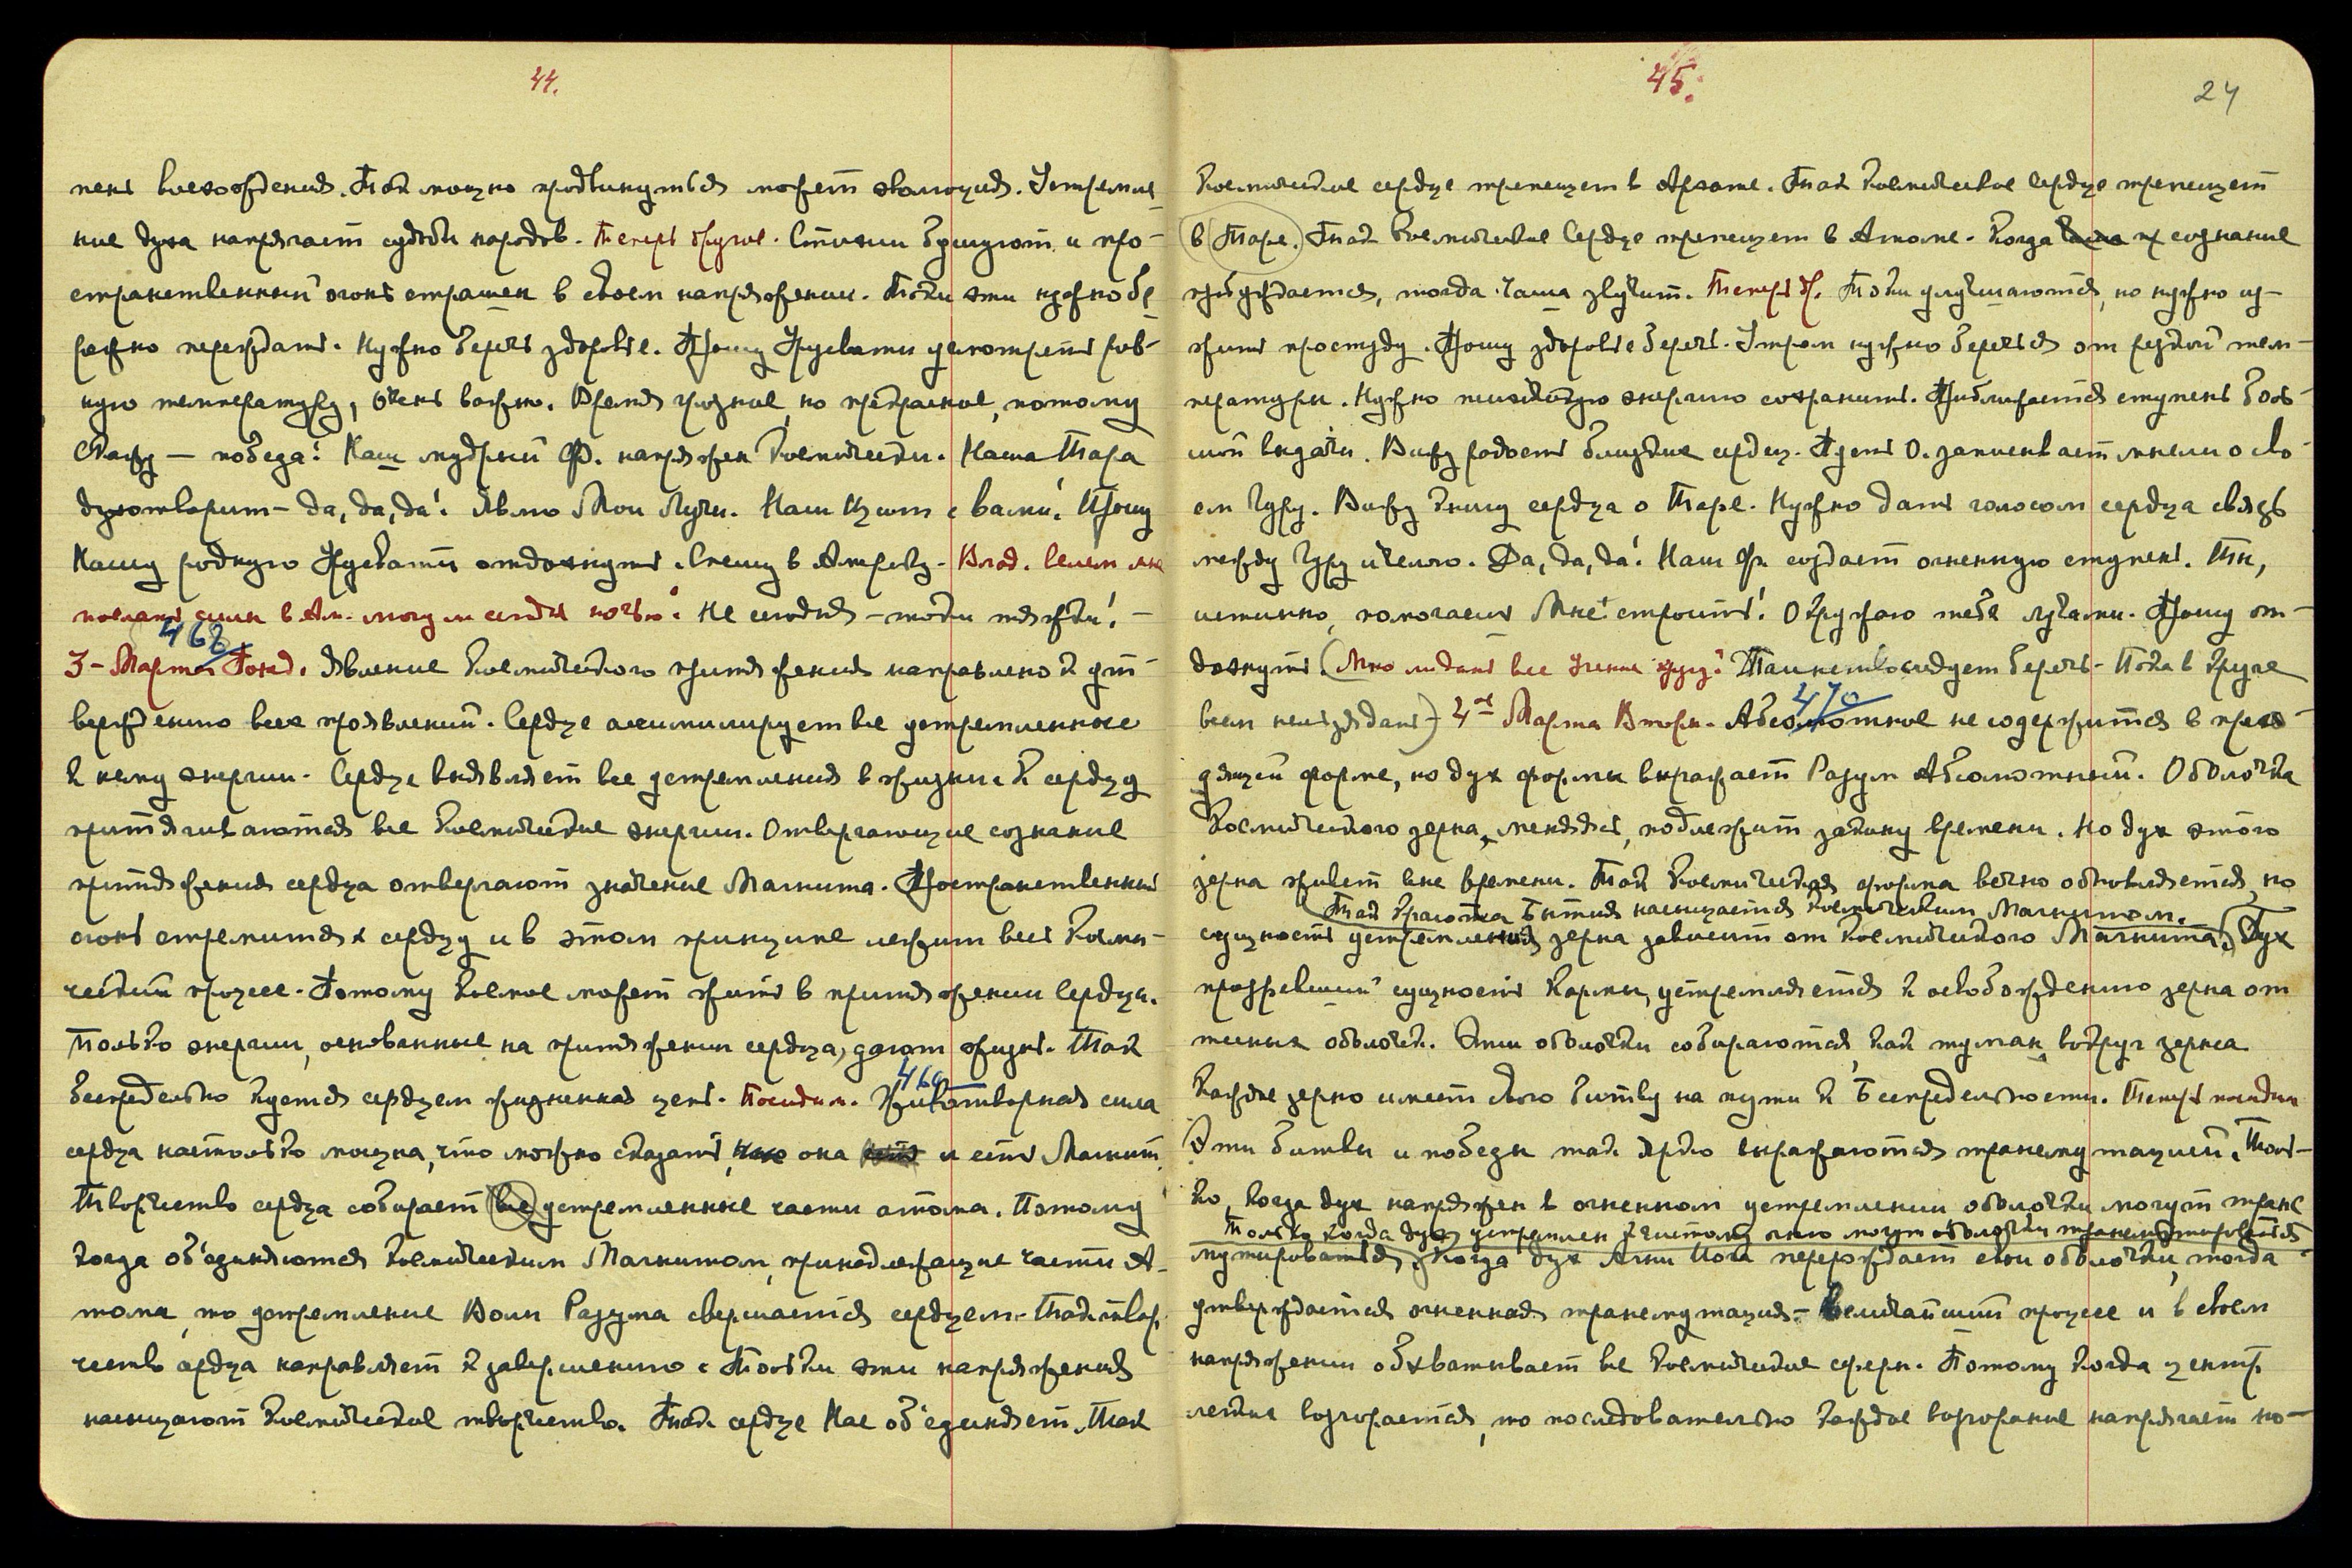 44.
пень восхождения. Так мощно продвинуться может эволюция. Устремле-
ние духа напрягает судьбы народов. Теперь другое. Стихии бушуют и про-
странственный огонь страшен в своем напряжении. Токи эти нужно бе-
режно переждать. Нужно беречь здоровье. Прошу Урусвати усмотреть ров-
ную температуру, очень важно. Время грозное, но прекрасное, потому
скажу — победа! Наш мудрый Ф. напряжен космически. Наша Тара
духотворит — да, да, да! Явлю Мои Лучи. Наш Щит с вами! Прошу
Нашу родную Урусвати отдохнуть. Спешу в Америку. Влад.
послать в Ам. ночью! Не сегодня — токи тяжки! —
468
3 — Марта Понед. Явление космического притяжения направлено к ут-
верждению всех проявлений. Сердце ассимилирует все устремленные
к нему энергии. Сердце выявляет все устремления в жизни. К сердцу
притягиваются все космические энергии. Отвергающие сознание
притяжения сердца отвергают значение Магнита. Пространственный
огонь стремится к сердцу и в этом принципе лежит весь косми-
ческий процесс. Потому космос может жить в притяжении Сердца.
Только энергии, основанные на притяжении сердца, дают жизнь. Так
беспредельно куется сердцем жизненная цепь. Посидим. 469 Животворная сила
сердца настолько мощна, что можно сказать, она и есть Магнит.
Творчество сердца собирает все устремленные части атома. Потому
когда об'единяются космическим Магнитом, принадлежащие части А-
тома, то устремление Воли Разума свершается сердцем. Так твор-
чество сердца направляет к завершению. Только эти напряжения
насыщают космическое творчество. Так сердце Нас об'единяет. Так
45.
24
космическое сердце трепещет в Архате. Так космическое сердце трепещет
в Таре. Так Космическое Сердце трепещет в Атоме. Когда сознание
пробуждается, тогда Чаша звучит. Теперь д. Токи улучшаются, но нужно из-
жить простуду. Прошу здоровье беречь. Утром нужно беречься от резкой тем-
пературы. Нужно психическую энергию сохранить. Приближается ступень боль-
шой выдачи. Вижу радость близких сердец. Пусть О. записывает мысли о сво-
ем Гуру. Вижу книгу сердца о Таре. Нужно дать голосом сердца связь
между Гуру и чело. Да, да, да! Наш Ф. создает огненную ступень. Ты,
истинно, помогаешь Мне строить! Окружаю тебя лучами. Прошу от-
дохнуть. все Учение Таинство следует беречь. Пока в круге
всем нельзя дать) 4го Марта Вторн. 470 Абсолютное не содержится в прехо-
дящей форме, но дух формы выражает Разум Абсолютный. Оболочка
космического зерна, меняясь, подлежит закону времени. Но дух этого
зерна живет вне времени. Так космическая форма вечно обновляется, но
Так красота Бытия насыщается космическим Магнитом.
сущность устремления зерна зависит от космического Магнита. Дух
прозревший сущность Кармы, устремляется к освобождению зерна от
тесных оболочек. Эти оболочки собираются, как туман, вокруг зерна.
Каждое зерно имеет свою битву на пути к Беспредельности. Теперь посидим
Эти битвы и победы так ярко выражаются трансмутацией. Толь-
ко, когда дух напряжен в огненном устремлении оболочки могут транс-
Только когда дух устремлен к чистому огню могут оболочки трансмутироваться
мутироваться. Когда дух Агни Йога перерождает свои оболочки, тогда
утверждается огненная трансмутация — величайший процесс и в своем
напряжении обхватывает все космические сферы. Потому когда центр
легких возгорается, то последовательно каждое возгорание напрягает но-